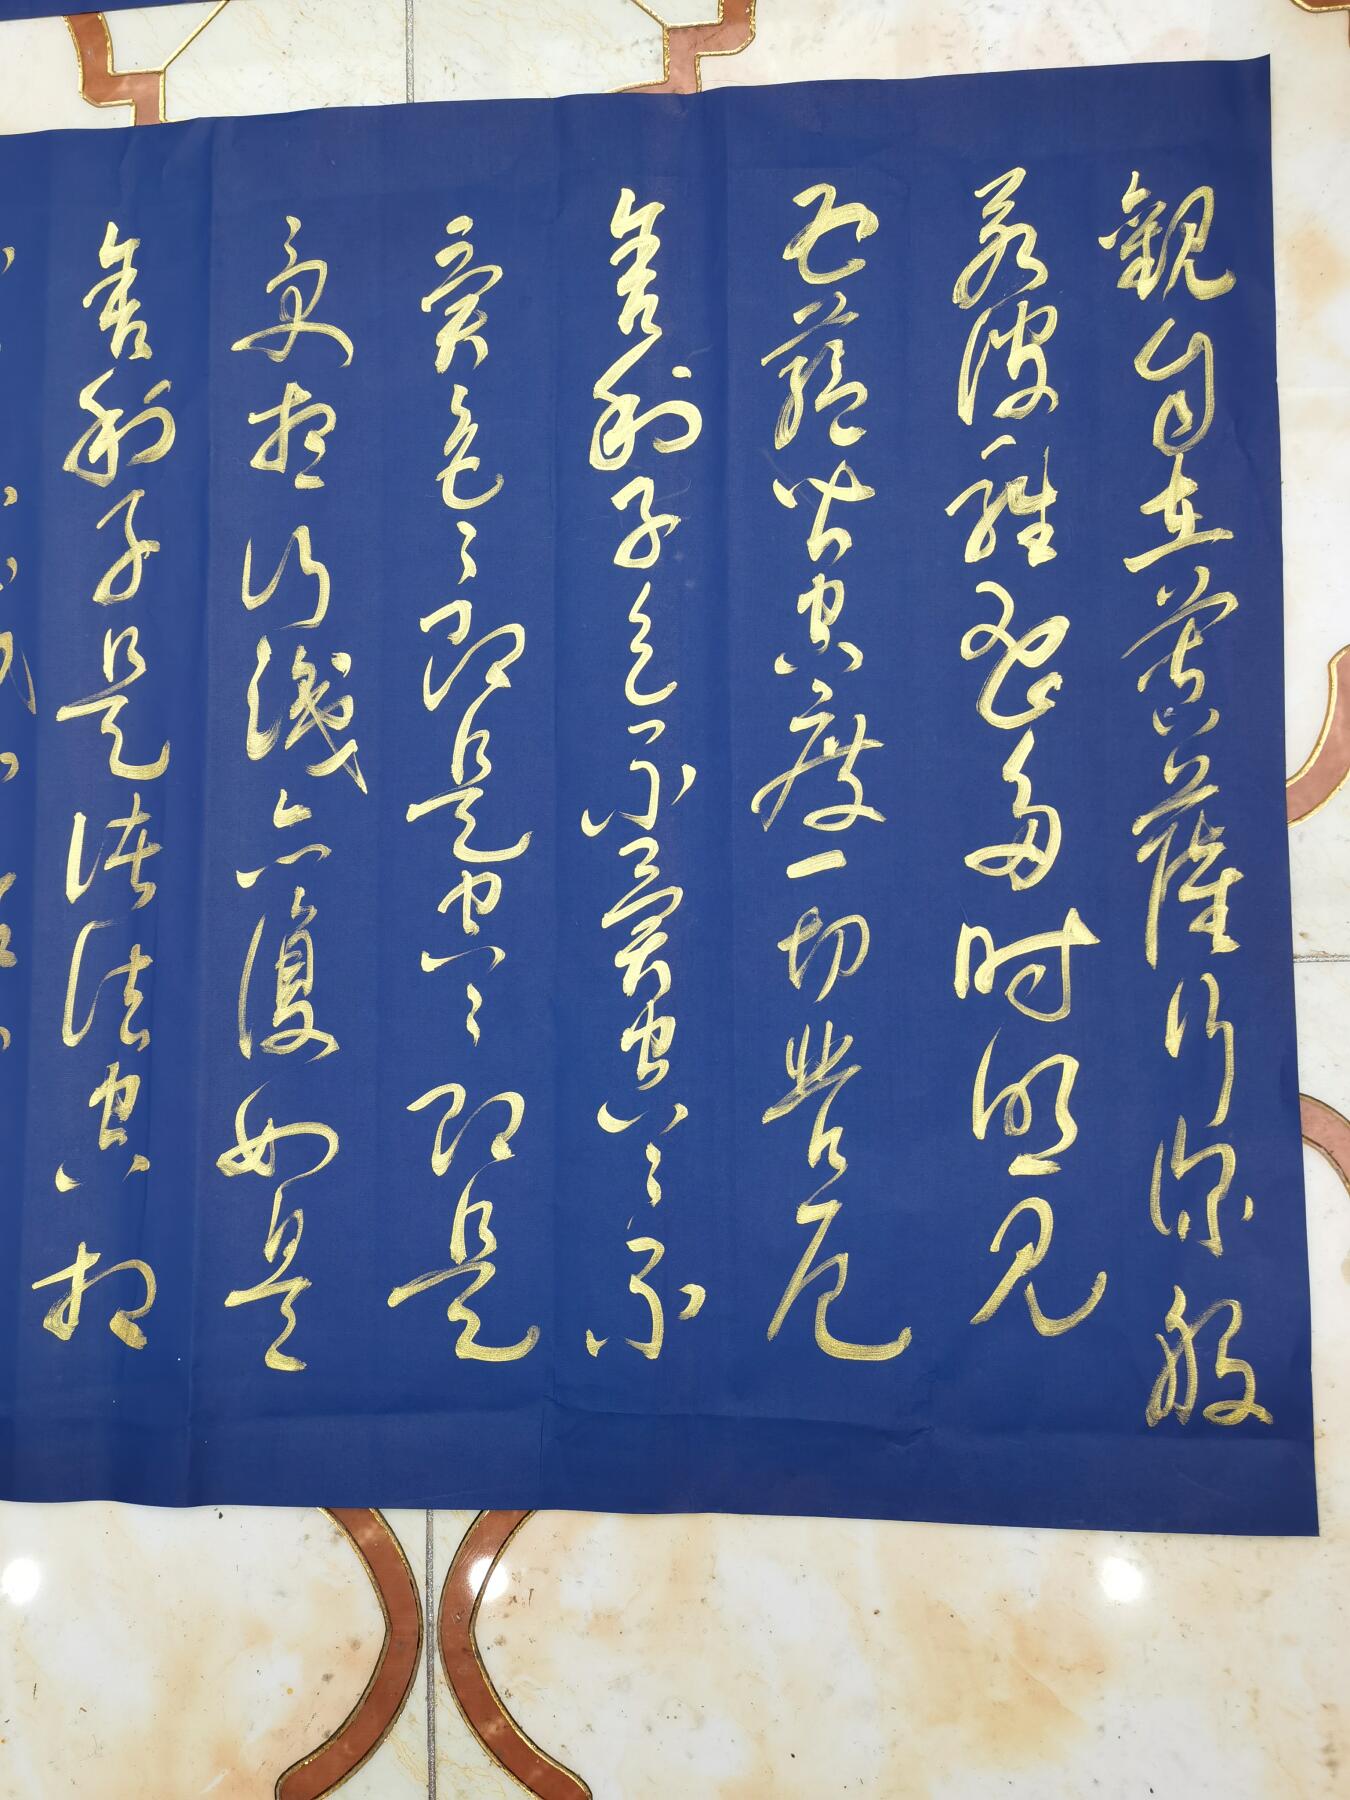 觀自在菩薩行深般
若波羅蜜多時照見
五蘊皆空度一切苦厄
舍利子色不異空〻不
異色〻即是空〻即是
受想行識亦復如是
舍利子是諸法空相